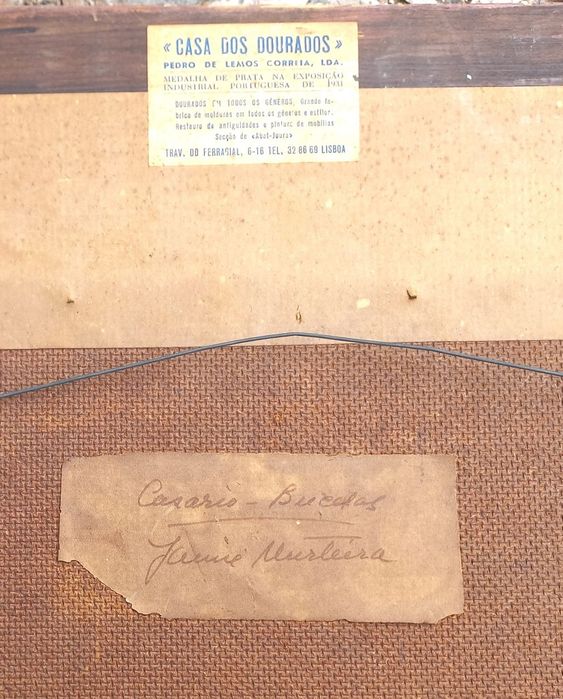 « CASA DOS DOURADOS »
PEDRO DE LEMOS CORREIA, LDA.
MEDALHA DE PRATA NA EXPOSIÇÃO
INDUSTRIAL PORTUGUESA DE 1931
DOURADOS EM TODOS OS GÉNEROS, Grande fa-
brica de molduras em todos os géneros e estilos.
Restauro de antiguidades e pintura de mobílias
Secção de «Abat-Jours»
TRAV. DO FERRAGIAL, 6-16 TEL. 32 86 69 LISBOA
Casario - Bucelas
Jaime Murteira